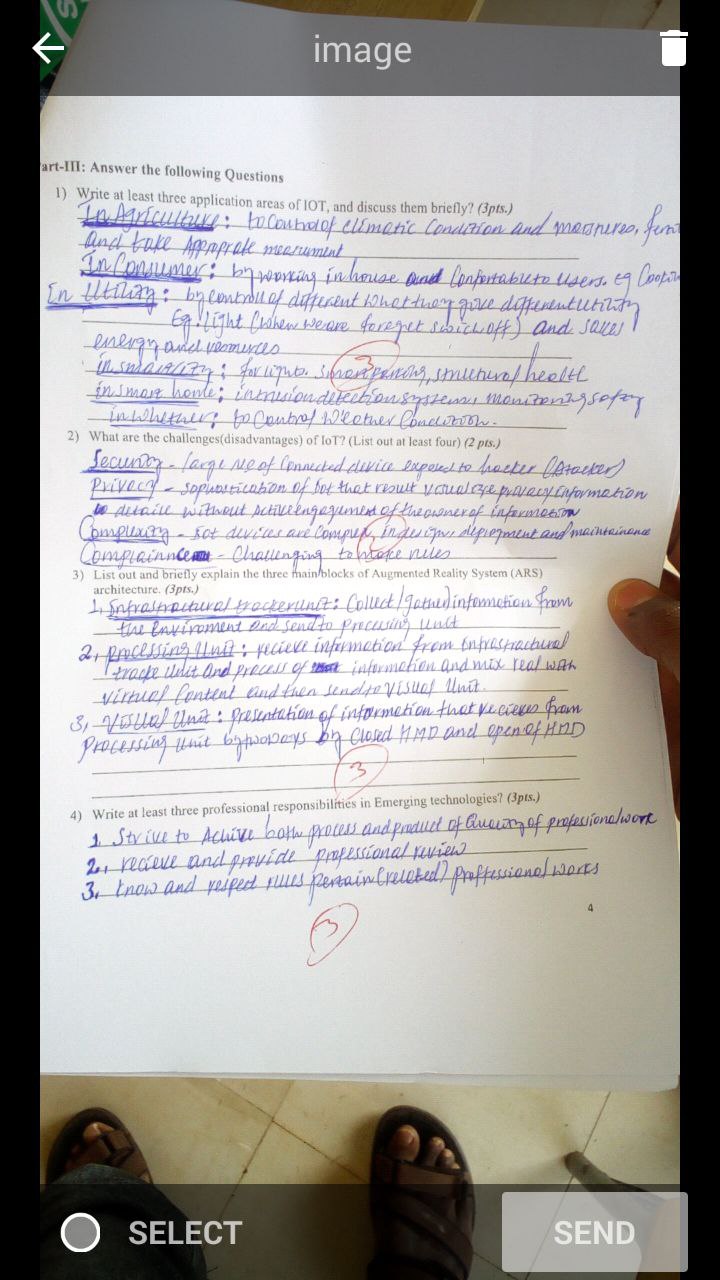 image
art-III: Answer the following Questions
1) Write at least three application areas of IOT, and discuss them briefly? (3pts.)
In Agriculture: to Control of climatic Condition and
and take measurment
In Consumer: by working in house and Confortable to users. Eg
In Utility: by control of different what they give different utility
Eg. light (when we are foreget swich off) and saves
energy and resources
in smart city: for light. smart parking, structural health
in smart home: intrusion detection systems, monitoring safty
in whether: to Control Weather Condition.
2) What are the challenges(disadvantages) of IoT? (List out at least four) (2 pts.)
Security - large no of Connected device expose to hacker (Attacker)
Privacy - sophistication of Iot that result privacy information
detaile without active engagement of the owner of information
Complexity - Iot devices are Complex in design deployment and maintainance
- Challenging to make rules
3) List out and briefly explain the three main blocks of Augmented Reality System (ARS)
architecture. (3pts.)
1, Infrastractural tracker unit: Collect/gather/information from
the Enviroment and send to processing unit
2, processing Unit: recieve information from Infrastractural
tracke Unit and process of information and mix real with
virtual Content and then send to Visual Unit.
3, Visual Unit: presentation of information that recieves from
processing unit by two ways by Closed HMD and open of HMD
3
4) Write at least three professional responsibilities in Emerging technologies? (3pts.)
1. Strive to Achive both process and product of Quality of professional work
2. recieve and provide professional review
3. know and respect rules pertain (related) proffessional works
4
3
SELECT
SEND